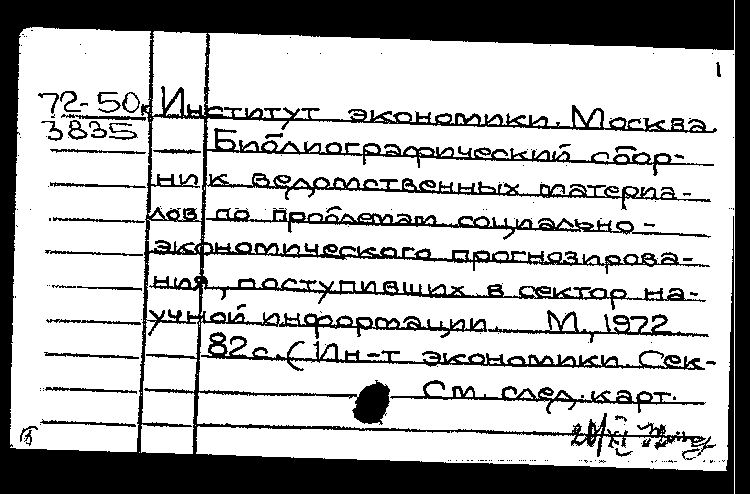 1
72-50к Институт экономики. Москва.
3835
Библиографический сбор-
ник ведомственных материа-
лов по проблемам социально-
экономического прогнозирова-
ния, поступивших в сектор на-
учной информации. М., 1972.
82с. (Ин-т экономики. Сек-
См. след. карт.